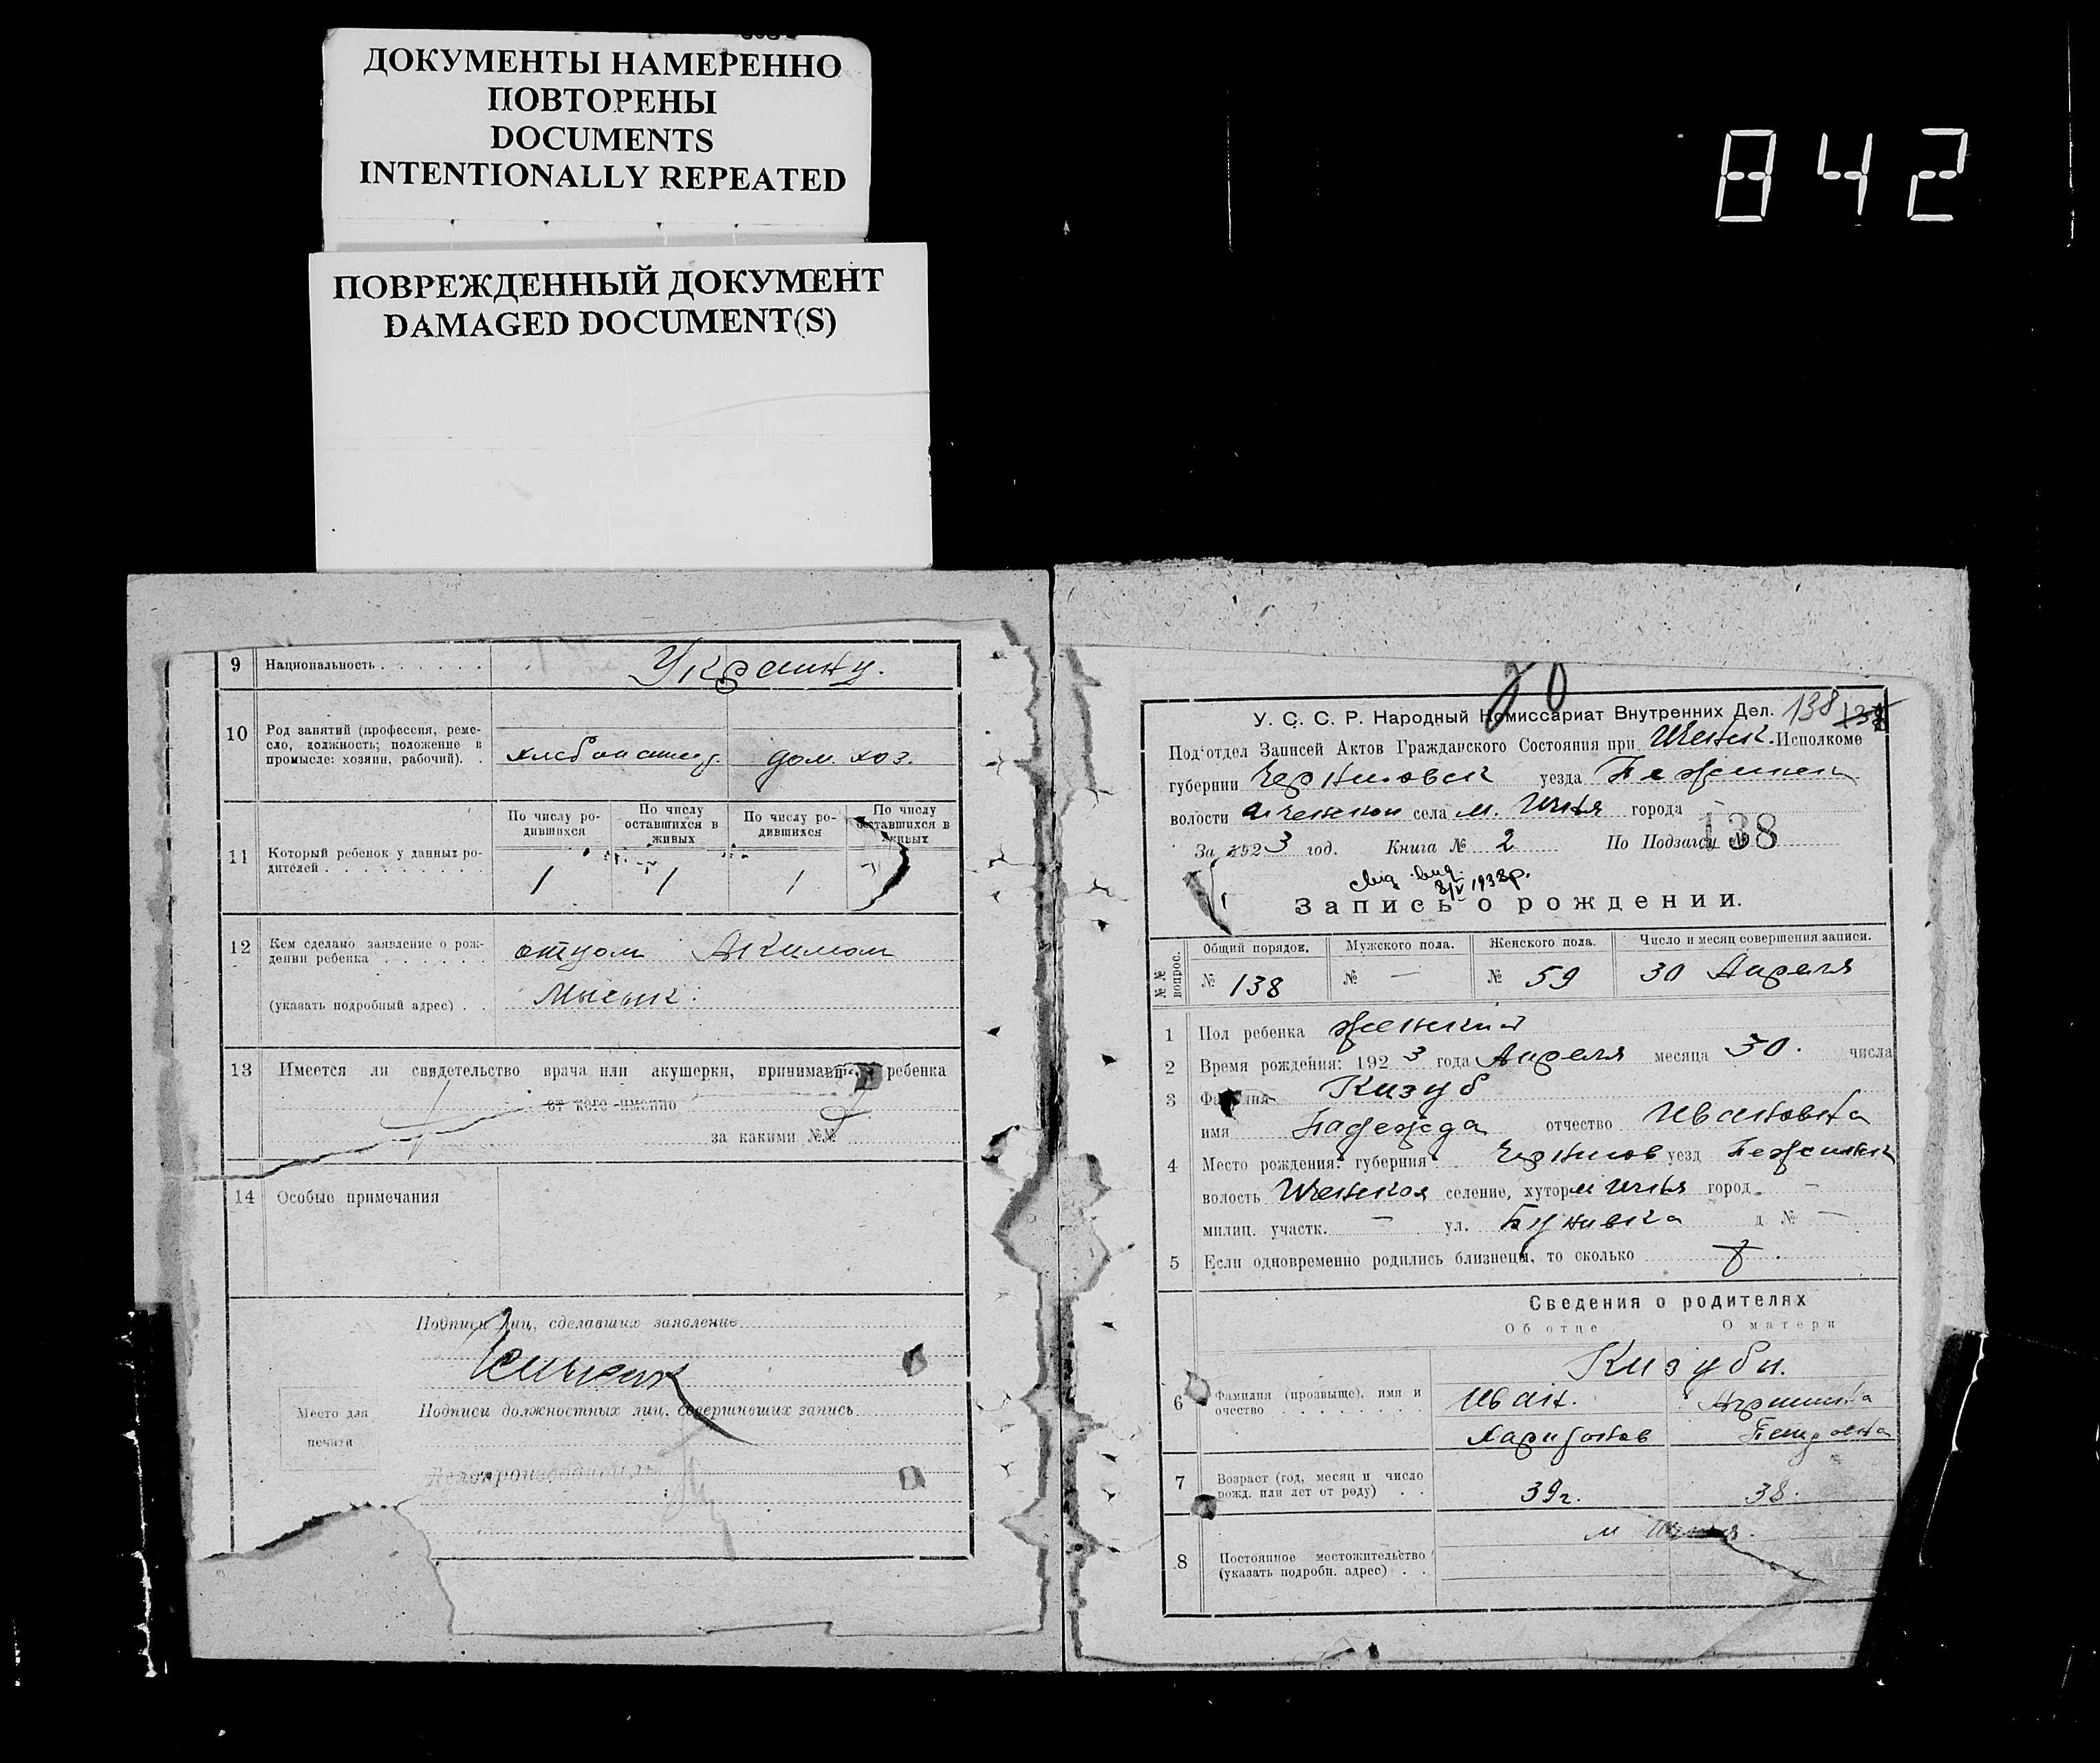 ДОКУМЕНТЫ НАМЕРЕННО
ПОВТОРЕНЫ
DOCUMENTS
INTENTIONALLY REPEATED
ПОВРЕЖДЕННЫЙ ДОКУМЕНТ
DAMAGED DOCUMENT(S)
842
9 Национальность . . . . . . Украинц.
10 Род занятий (профессия, реме-
сло, должность; положение в
промысле: хозяин, рабочий). . дом. хоз.
По числу ро-
дившихся
По числу
оставшихся в
живых
По числу ро-
дившихся
По числу
оставшихся в
живых
11 Который ребенок у данных ро-
дителей . . . . . . . . . 1 1 1
12 Кем сделано заявление о рож-
дении ребенка . . . . . . отцом Акимом
(указать подробный адрес) . . Мысик.
13 Имеется ли свидетельство врача или акушерки, ребенка
от кого именно
за какими №№
14 Особые примечания
Подписи лиц, сделавших заявление
Место для
печати
Подписи должностных лиц, совершивших запись
Делопроизводитель
20
У. С. С. Р. Народный Комиссариат Внутренних Дел. 138
Под'отдел Записей Актов Гражданского Состояния при Ичен. Исполкоме
губернии Черниговск уезда Нежинск
волости Иченской села м. Ичня города
За 1923 год. Книга № 2 По Подзагсу № 138
8/V 1938р.
Запись о рождении.
№ № вопрос.
Общий порядок. Мужского пола. Женского пола. Число и месяц совершения записи.
№ 138 № — № 59 30 Апреля
1 Пол ребенка женский
2 Время рождения: 1923 года Апреля месяца 30. числа
3 Фамилия Кизуб
имя Надежда отчество Ивановна
4 Место рождения: губерния Чернигов уезд Нежинск
волость Иченская селение, хутор м Ичня город —
милиц. участк. — ул. д № —
5 Если одновременно родились близнецы, то сколько
Сведения о родителях
Об отце О матери
Кизубы.
6 Фамилия (прозвище), имя и
очество . . . . . . . .
Иван. Харитонов
Петровна
7 Возраст (год, месяц и число
рожд. или лет от роду) . . 39г. 38.
м Ичня.
8 Постоянное местожительство
(указать подробн. адрес) . .